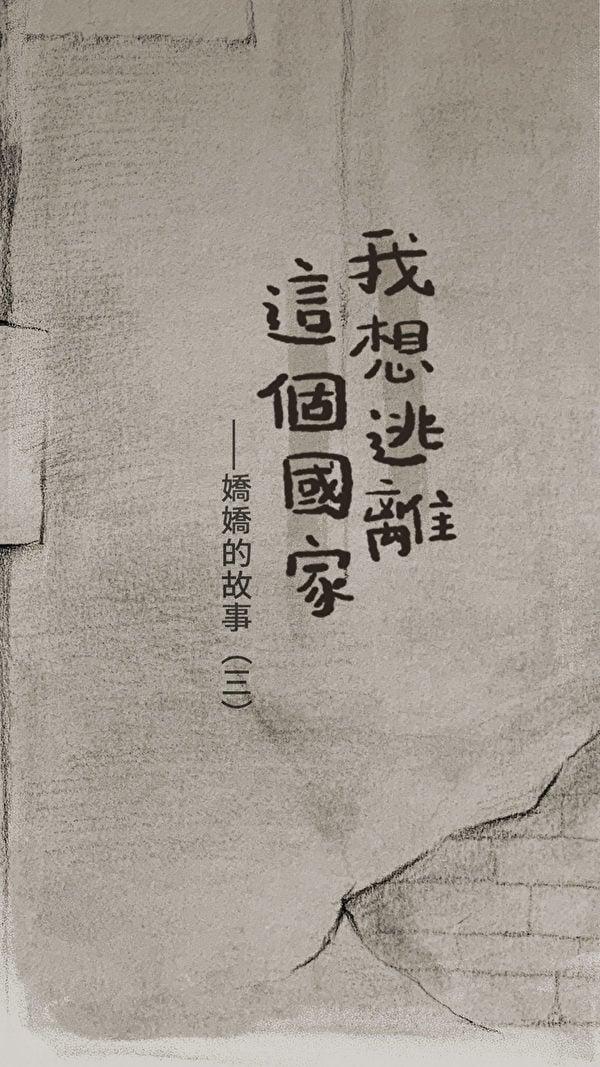 我想逃離
這個國家
——嬌嬌的故事（三）